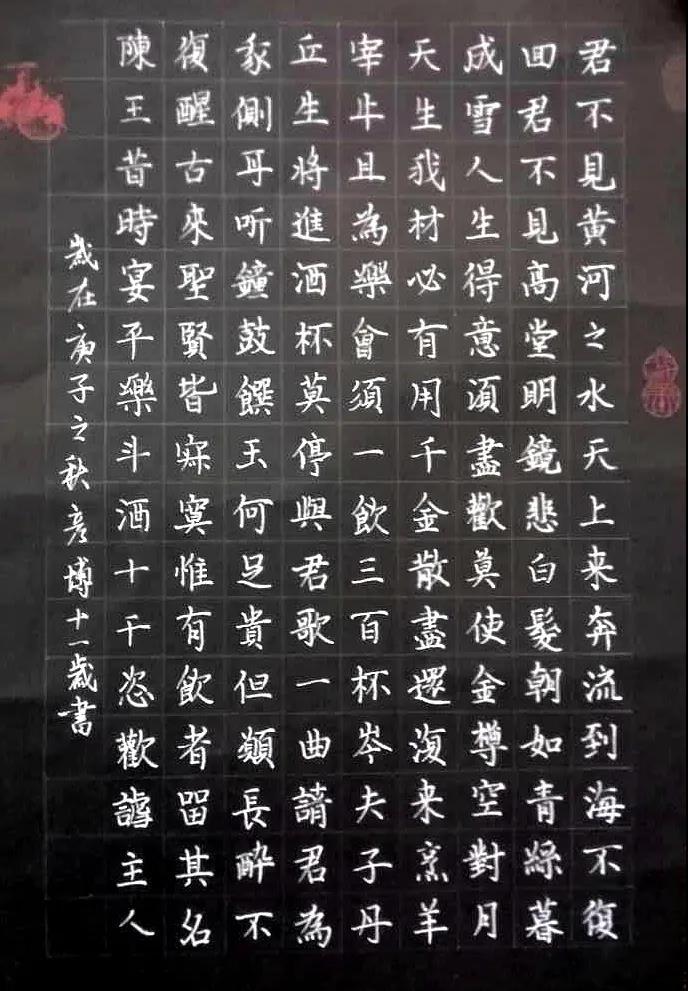 君不見黄河之水天上来奔流到海不復
回君不見高堂明鏡悲白髮朝如青絲暮
成雪人生得意須盡歡莫使金樽空對月
天生我材必有用千金散盡還復来烹羊
宰牛且為樂會須一飲三百杯岑夫子丹
丘生將進酒杯莫停與君歌一曲請君為
我側耳听鐘鼓饌玉何足貴但願長醉不
復醒古來聖賢皆寂寞惟有飲者留其名
陳王昔時宴平樂斗酒十千恣歡謔主人
歲在庚子之秋彦博十一歲書